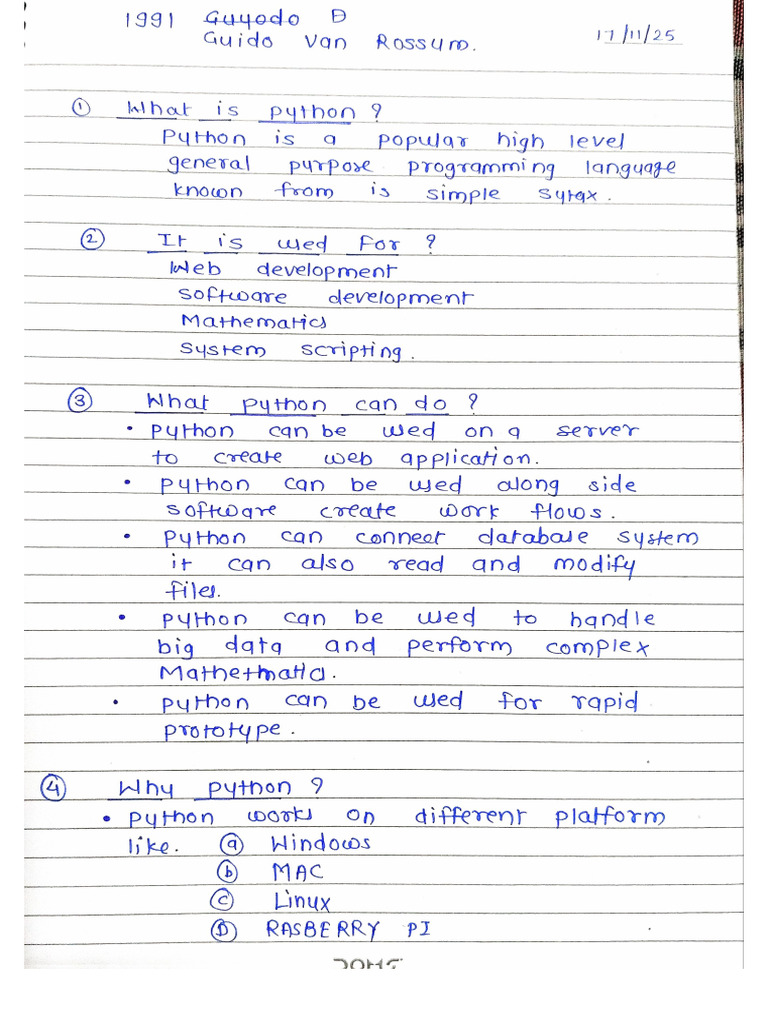 1991 Guyodo D
Guido Van Rossum.
17/11/25
① What is python ?
Python is a popular high level
general purpose programming language
known from is simple sytax.
② It is used for ?
Web development
software development
Mathematics
System scripting.
③ What python can do ?
• python can be used on a server
to create web application.
• python can be used along side
software create work flows.
• python can connect database system
it can also read and modify
files.
• python can be used to handle
big data and perform complex
Mathethmatics.
• python can be used for rapid
prototype.
④ Why python ?
• python works on different platform
like. ⓐ Windows
ⓑ MAC
ⓒ Linux
ⓓ RASBERRY PI